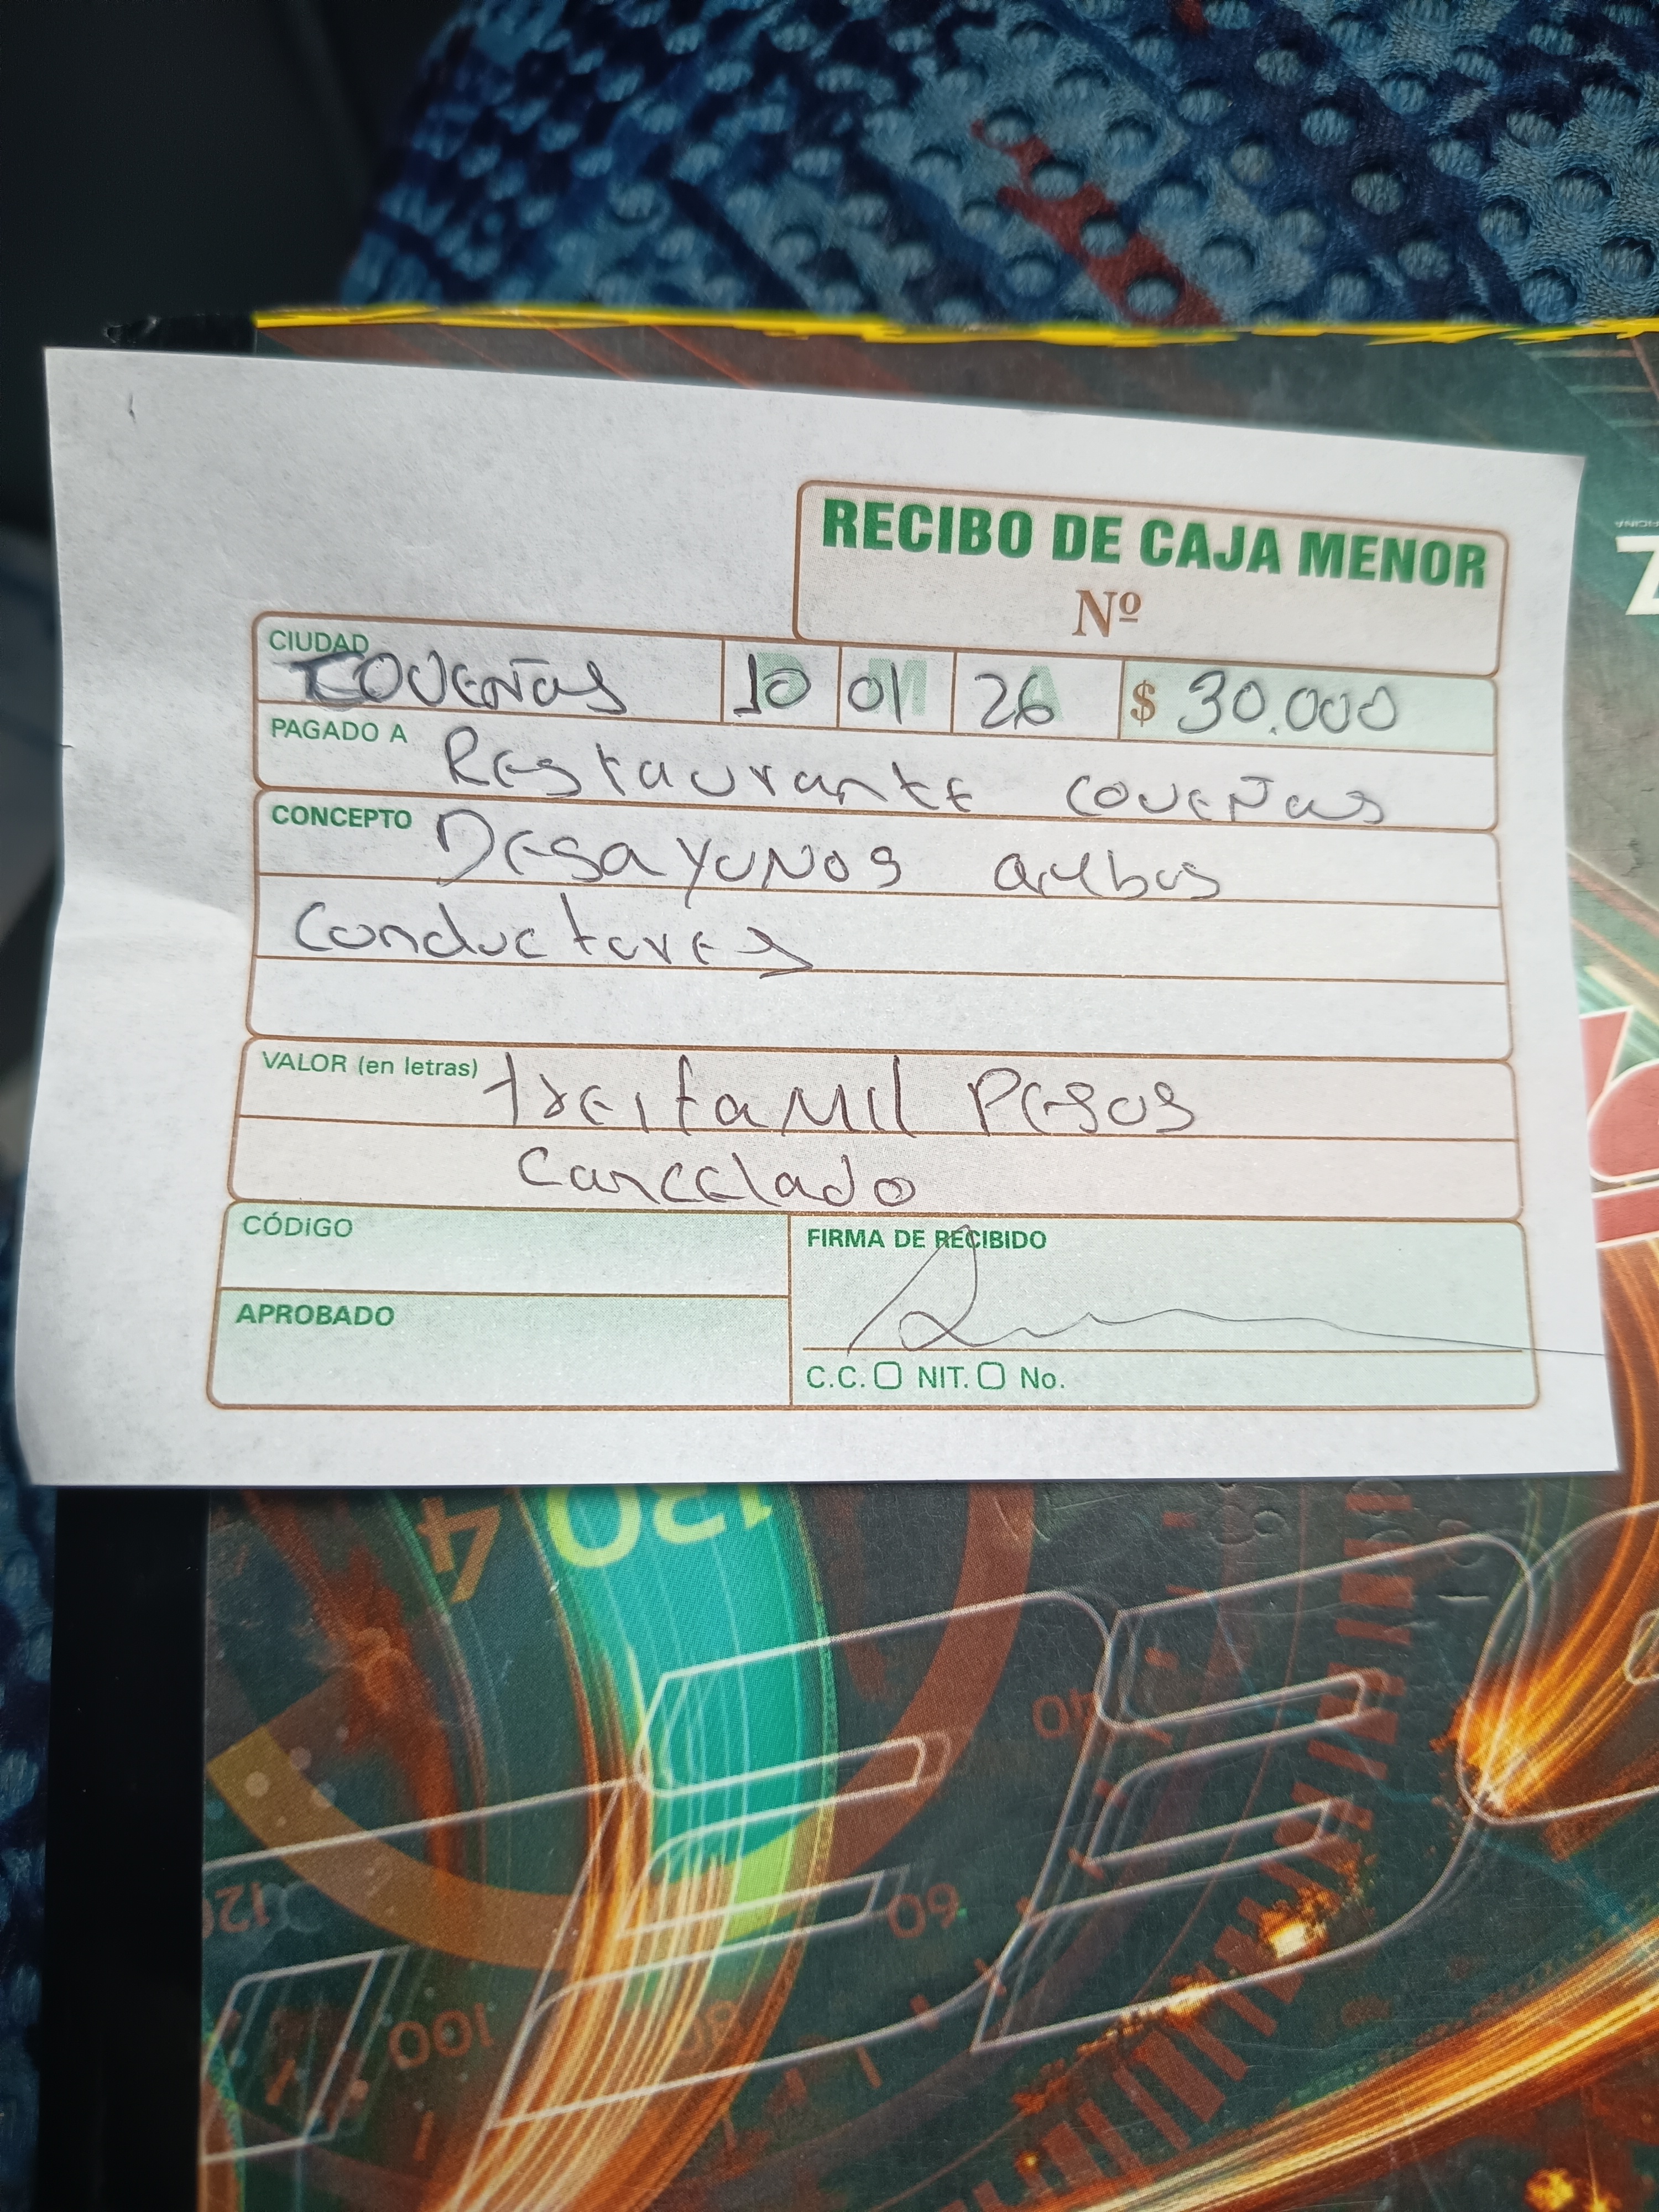 RECIBO DE CAJA MENOR
Nº
CIUDAD
COVEÑAS 10 01 26 $ 30.000
PAGADO A Restaurante COVEÑAS
CONCEPTO Desayunos ambos
conductores
VALOR (en letras) treitamil Pesos
Cancelado
CÓDiGO
FIRMA DE RECIBIDO
APROBADO
C.C. NIT. No.
130
4
40
120
60
100
80